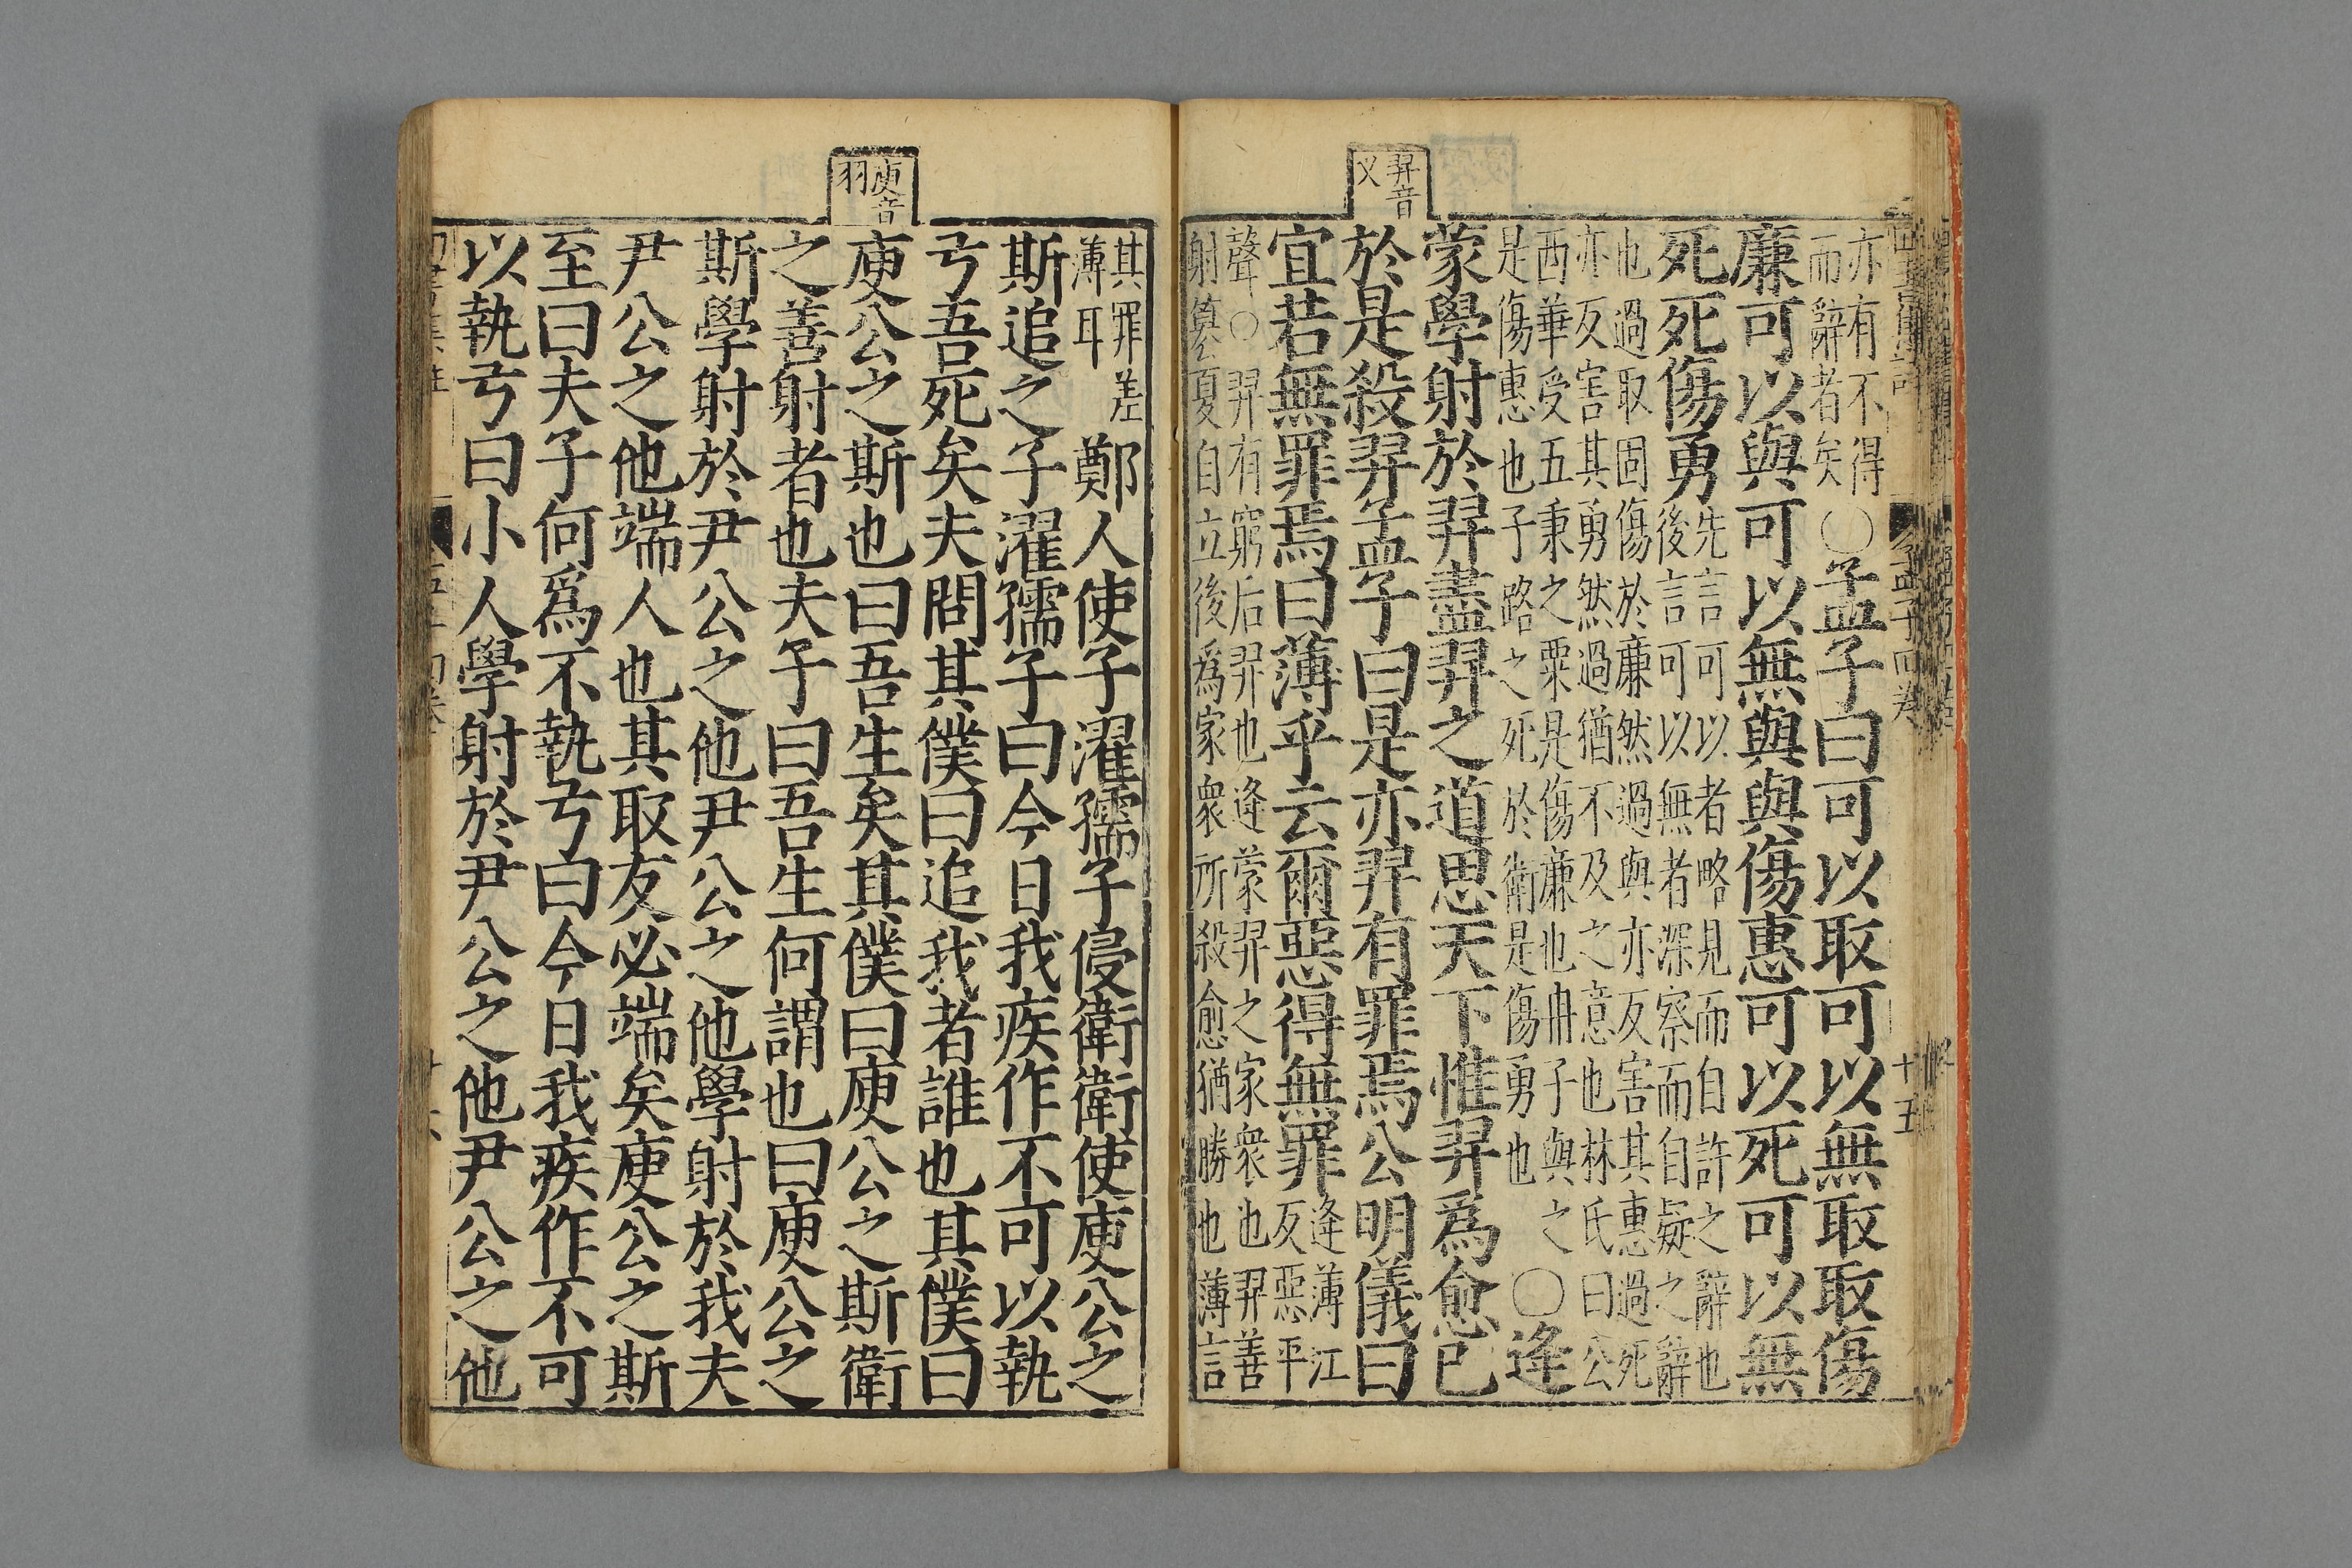 孟子四卷 十五
亦有不得
而辭者矣
○孟子曰可以取可以無取取傷
廉可以與可以無與與傷惠可以死可以無
死死傷勇
先言可以者略見而自許之辭也
後言可以無者深察而自疑之辭
也過取固傷於廉然過與亦反害其惠過死
亦反害其勇然過猶不及之意也林氏曰公
西華受五秉之粟是傷廉也冉子與之
是傷惠也子路之死於衛是傷勇也
○逄
蒙學射於羿盡羿之道思天下惟羿爲愈已
羿音
乂
於是殺羿孟子曰是亦羿有罪焉公明儀曰
宜若無罪焉曰薄乎云爾惡得無罪
逄薄江
反惡平
聲○羿有窮后羿也逄蒙羿之家衆也羿善
射簒夏自立後爲家衆所殺愈猶勝也薄言
其罪差
薄耳
鄭人使子濯孺子侵衛衛使庾公之
斯追之子濯孺子曰今日我疾作不可以執
弓吾死矣夫問其僕曰追我者誰也其僕曰
庾音
羽
庾公之斯也曰吾生矣其僕曰庾公之斯衛
之善射者也夫子曰吾生何謂也曰庾公之
斯學射於尹公之他尹公之他學射於我夫
尹公之他端人也其取友必端矣庾公之斯
至曰夫子何爲不執弓曰今日我疾作不可
以執弓曰小人學射於尹公之他尹公之他